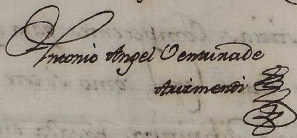 Antonio Angel Venturade
Arizmendi